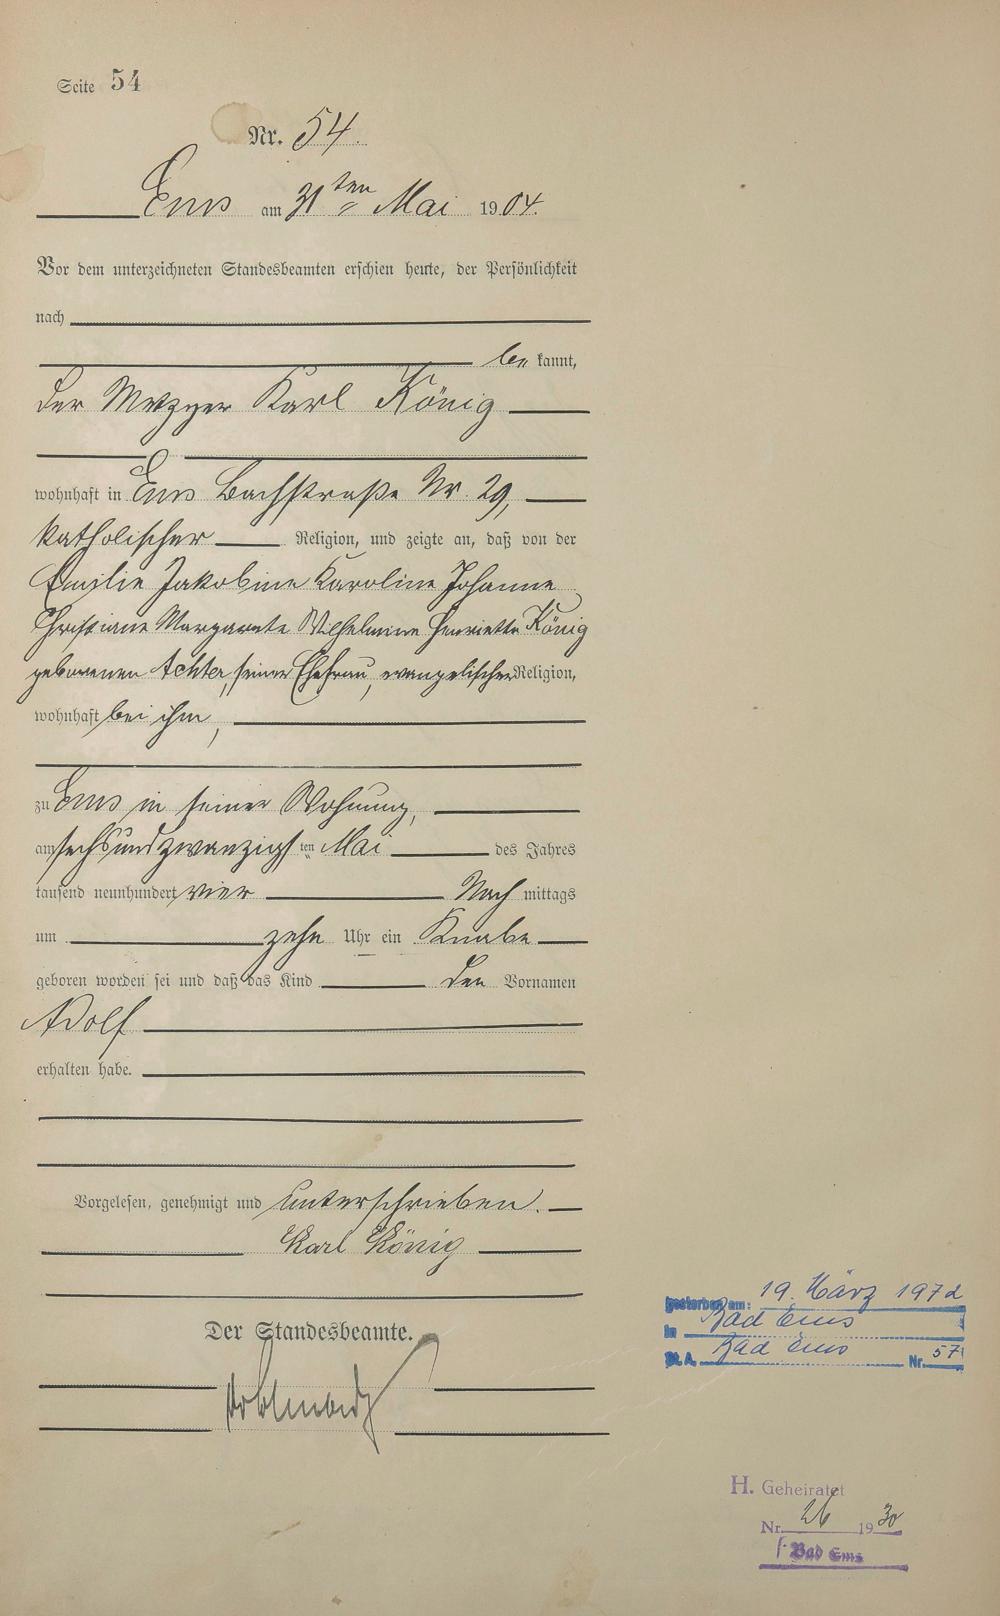 Seite 54
Nr. 54.
Ems am 31ten Mai 1904.
Vor dem unterzeichneten Standesbeamten erschien heute, der Persönlichkeit
nach
be kannt,
der Metzger Karl König
wohnhaft in Ems Bachstraße Nr. 29,
katholischer Religion, und zeigte an, daß von der
Emilie Jakobine Karoline Johanne
Christiane Margarete Wilhelmine Henriette König
geborenen Achter, seiner Ehefrau, evangelischer Religion,
wohnhaft bei ihm,
zu Ems in seiner Wohnung,
am sechsundzwanzigsten Mai des Jahres
tausend neunhundert vier Nach mittags
um zehn Uhr ein Knabe
geboren worden sei und daß das Kind den Vornamen
Adolf
erhalten habe.
Vorgelesen, genehmigt und unterschrieben.
Karl König
Der Standesbeamte.
gestorben am: 19. März 1972
in Bad Ems
St. A. Bad Ems Nr. 57
H. Geheiratet
Nr. 26 1930
Bad Ems